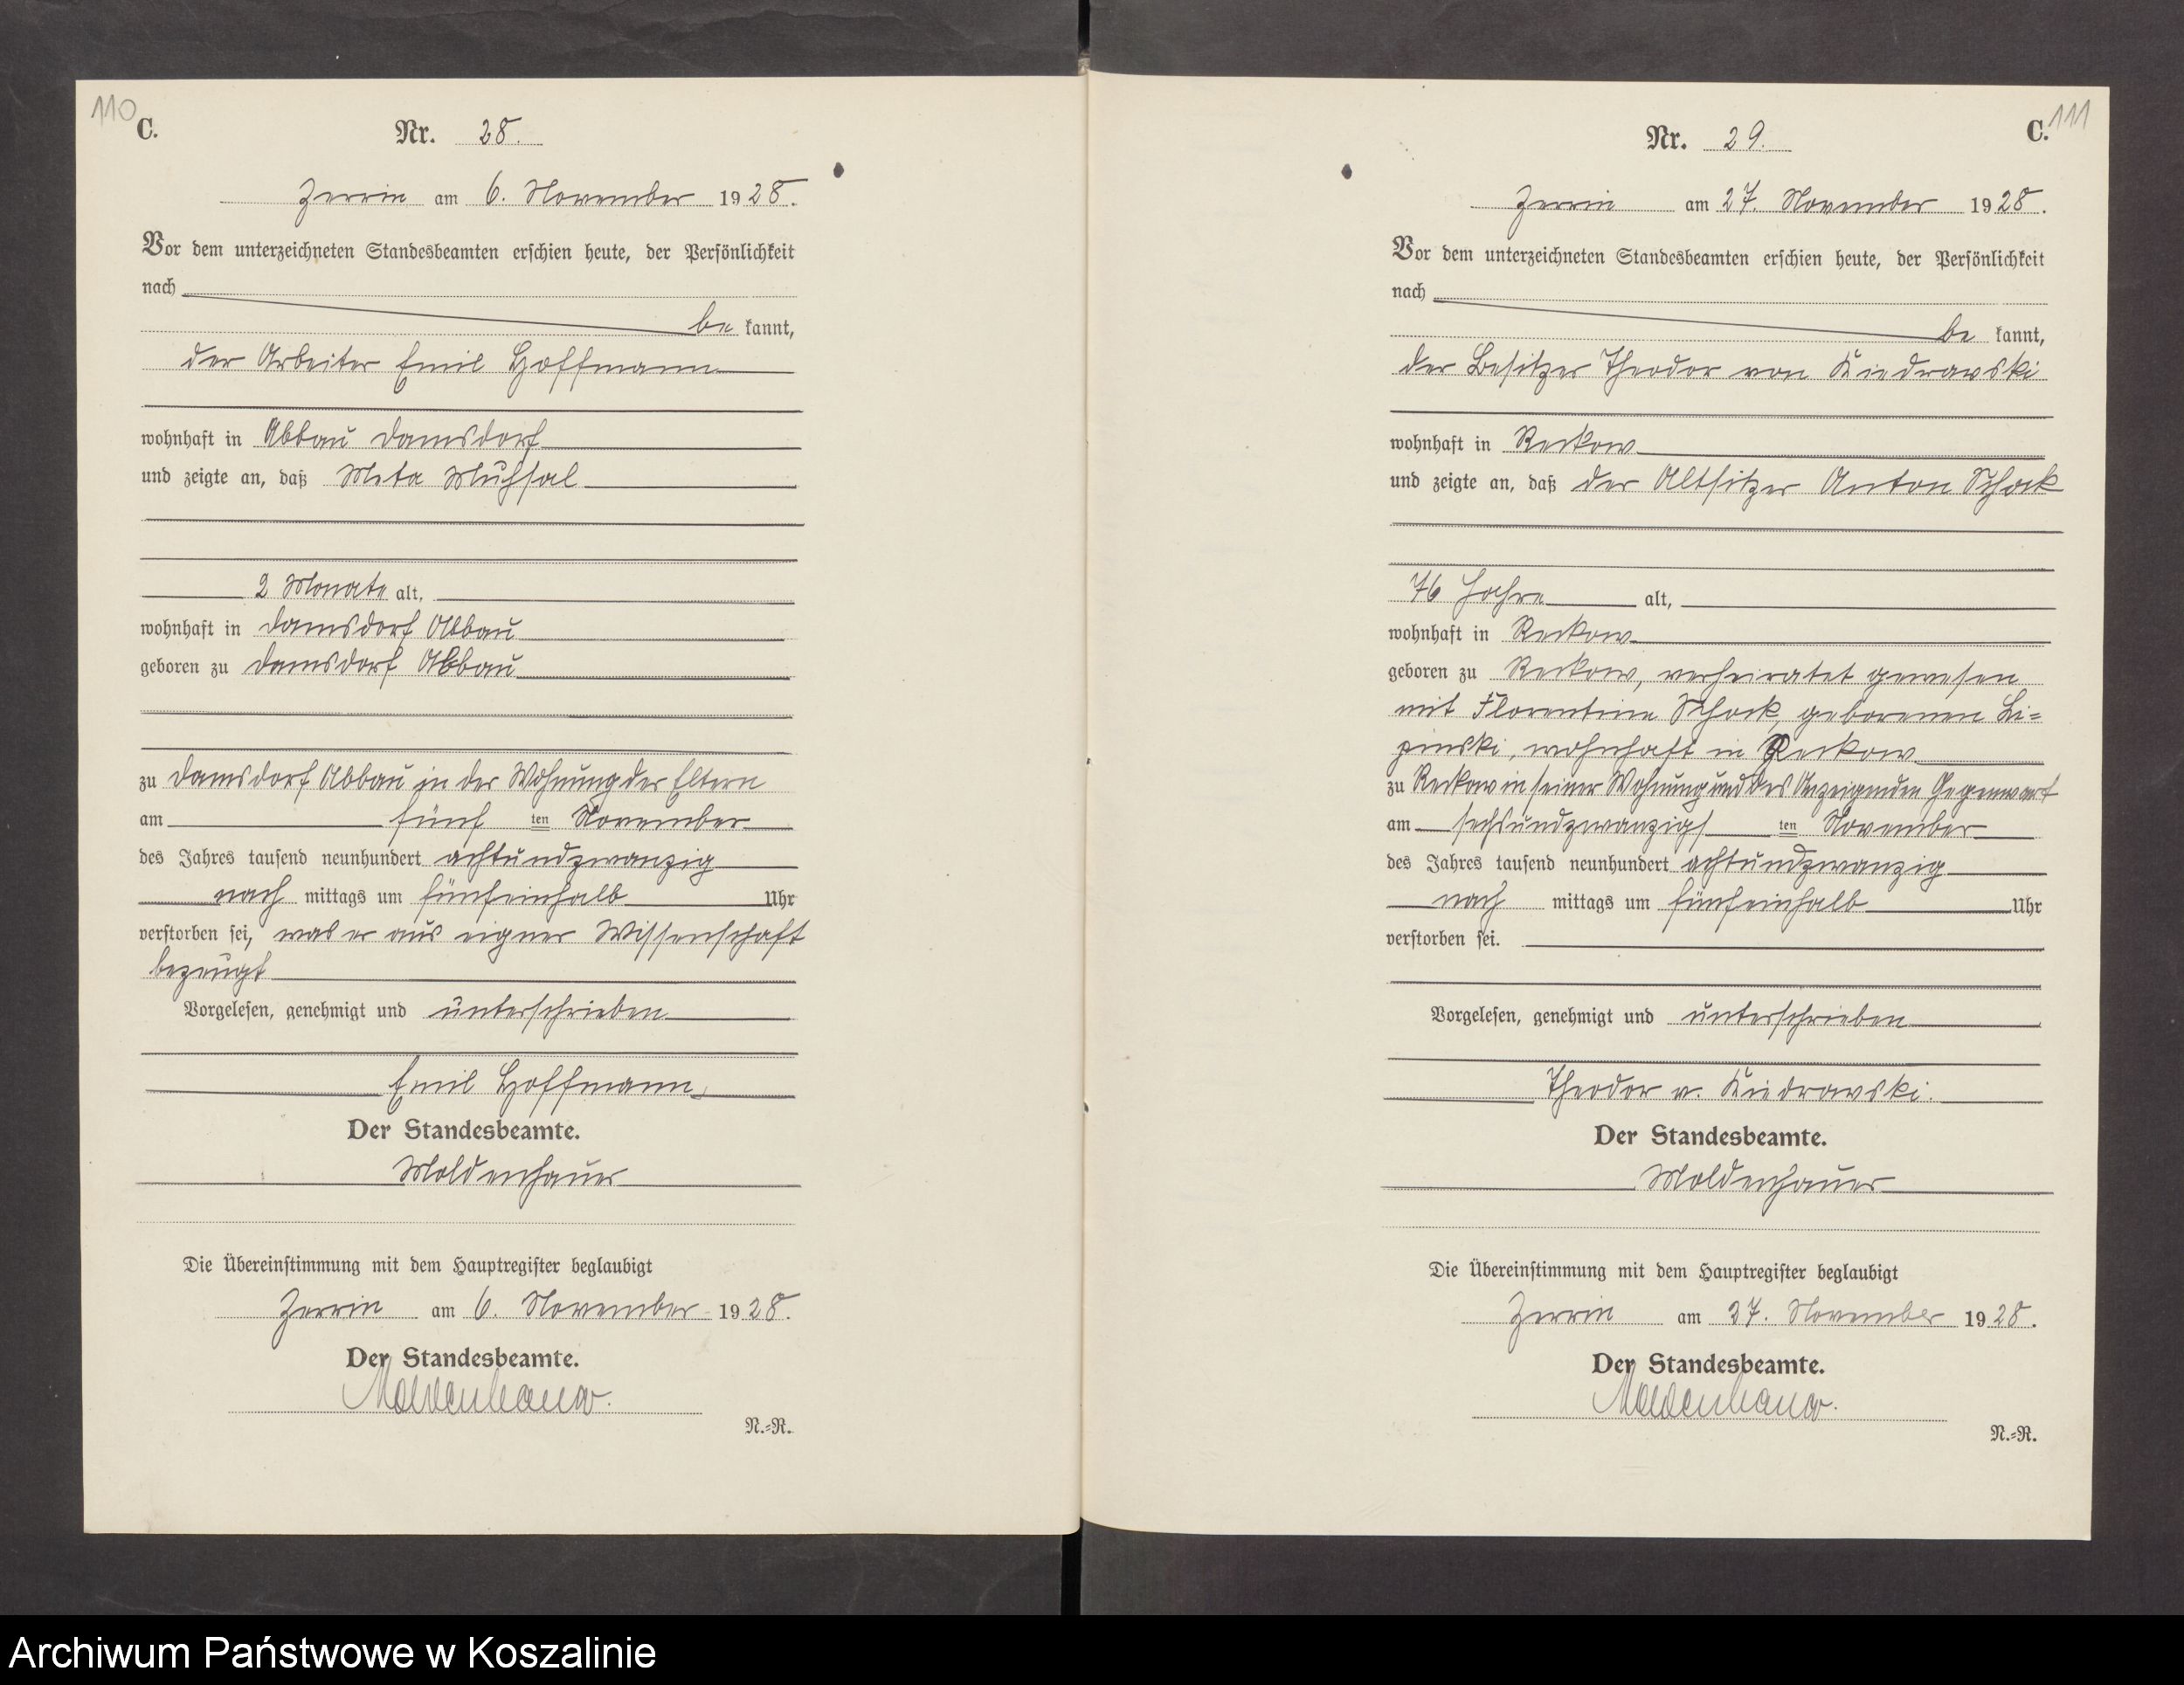 110
C.
Nr. 28.
Zerrin am 6. November 1928.
Vor dem unterzeichneten Standesbeamten erschien heute, der Persönlichkeit
nach
be kannt,
der Arbeiter Emil Hoffmann
wohnhaft in Abbau Damsdorf
und zeigte an, daß Meta Mühsal
2 Monate alt,
wohnhaft in Damsdorf Abbau
geboren zu Damsdorf Abbau
zu Damsdorf Abbau in der Wohnung der Eltern
am fünf ten November
des Jahres tausend neunhundert achtundzwanzig
nach mittags um fünfeinhalb Uhr
verstorben sei, was er aus eigner Wissenschaft
bezeugt
Vorgelesen, genehmigt und unterschrieben
Emil Hoffmann
Der Standesbeamte.
Moldenhauer
Die Übereinstimmung mit dem Hauptregister beglaubigt
Zerrin am 6. November 1928.
Der Standesbeamte.
Moldenhauer.
N.=R.
111
C.
Nr. 29.
Zerrin am 27. November 1928.
Vor dem unterzeichneten Standesbeamten erschien heute, der Persönlichkeit
nach
be kannt,
der Besitzer Theodor von Kiedrowski
wohnhaft in Reckow
und zeigte an, daß der Altsitzer Anton Schock
76 Jahre alt,
wohnhaft in Reckow
geboren zu Reckow, verheiratet gewesen
mit Florentine Schock, geborenen Li=
pinski, wohnhaft in Reckow
zu Reckow in seiner Wohnung und des Anzeigenden Gegenwart
am sechsundzwanzigs ten November
des Jahres tausend neunhundert achtundzwanzig
nach mittags um fünfeinhalb Uhr
verstorben sei.
Vorgelesen, genehmigt und unterschrieben
Theodor v. Kiedrowski.
Der Standesbeamte.
Moldenhauer
Die Übereinstimmung mit dem Hauptregister beglaubigt
Zerrin am 27. November 1928.
Der Standesbeamte.
Moldenhauer.
N.=R.
Archiwum Państwowe w Koszalinie